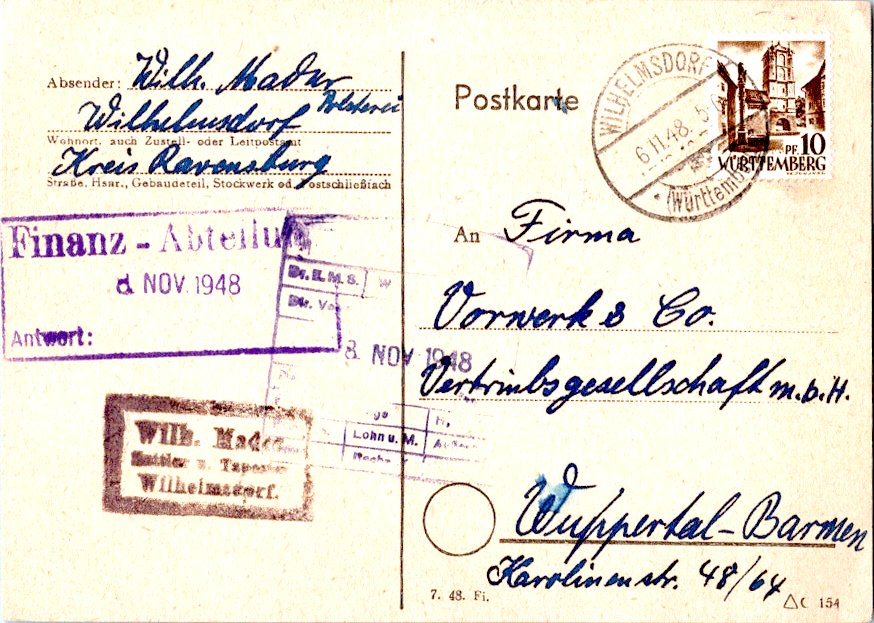 Absender: Wilh. Mader
Polsterei
Wilhelmsdorf
Wohnort, auch Zustell- oder Leitpostamt
Kreis Ravensburg
Straße, Hsnr., Gebäudeteil, Stockwerk od. Postschließfach
Postkarte
WILHELMSDORF
6.11.48.
(Württemb
PF. 10
WÜRTTEMBERG
An Firma
Vorwerk & Co.
Vertriebsgesellschaft m.b.H.
Wuppertal-Barmen
Karolinenstr. 48/64
Finanz - Abteilu
NOV. 1948
Antwort:
Dr. E. M. S. W
8. NOV 1948
Lohn u. M.
Wilh. Mader
Sattler u. Tapez
Wilhelmsdorf.
7. 48. Fi.
C 154